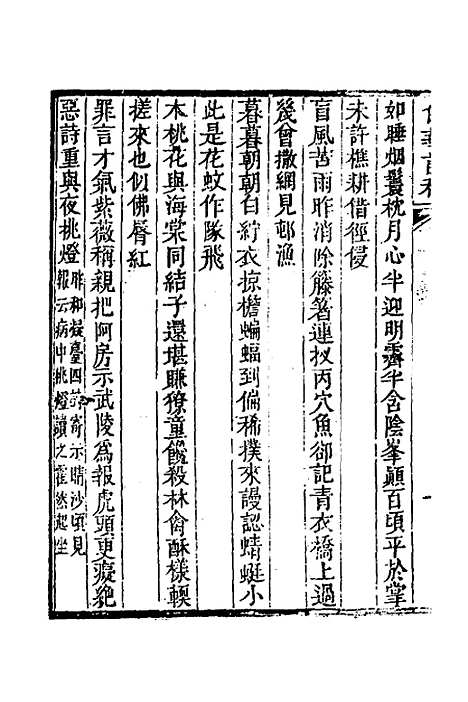 如睡烟鬟枕月心半迎明霽半含陰峯巔百頃平於掌
未許樵耕借徑侵
盲風苦雨昨消除籐箸連扠丙穴魚卻記青衣橋上過
幾曾撒網見邨漁
暮暮朝朝白紵衣掠檐蝙蝠到偏稀撲來謾認蜻蜓小
此是花蚊作隊飛
木桃花與海棠同結子還堪賺獠童饞殺林禽酥樣輭
搓來也似佛脣紅
罪言才氣紫薇稱親把阿房示武陵為報虎頭更癡絶
惡詩重與夜挑燈
昨和凝臺四詩寄示晴沙頃見
報云病中挑燈讀之霍然起坐